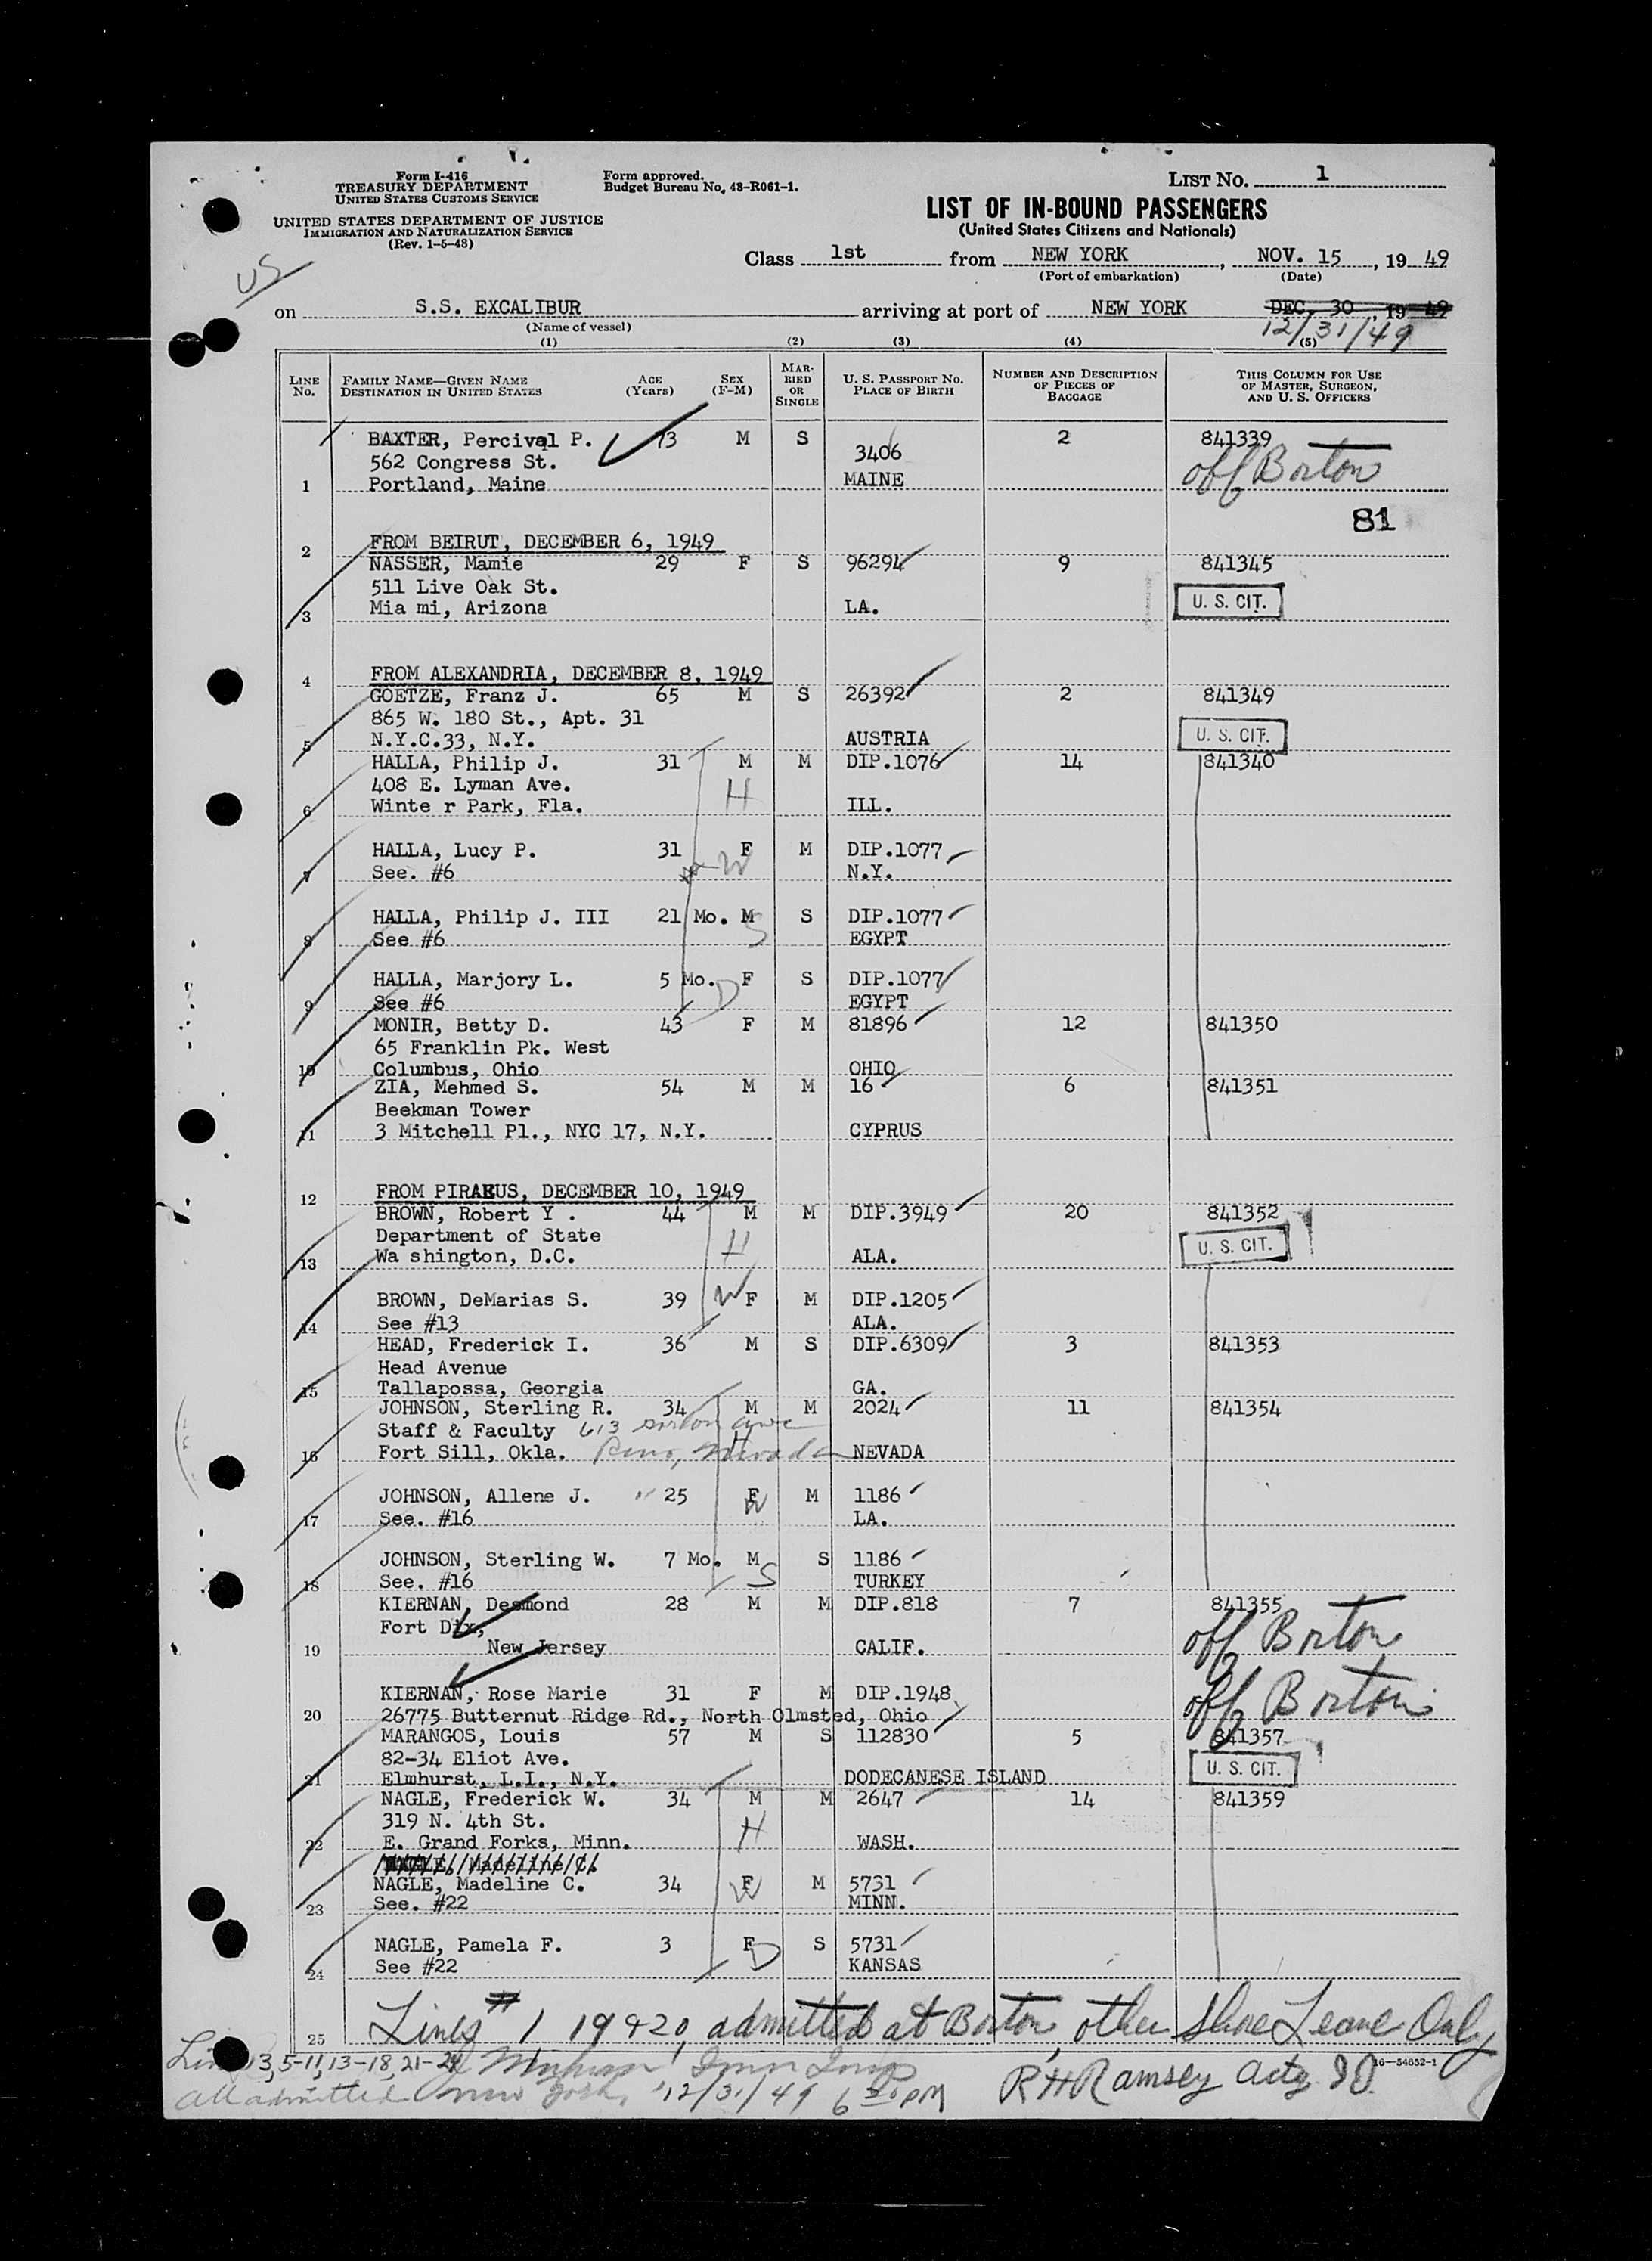 Form I-416
TREASURY DEPARTMENT
UNITED STATES CUSTOMS SERVICE
UNITED STATES DEPARTMENT OF JUSTICE
IMMIGRATION AND NATURALIZATION SERVICE
(Rev. 1-5-48)
Form approved.
Budget Bureau No. 48-R061-1.
LIST NO. 1
LIST OF IN-BOUND PASSENGERS
(United States Citizens and Nationals)
US
Class 1st from NEW YORK, NOV. 15, 19 49
(Port of embarkation) (Date)
on S.S. EXCALIBUR arriving at port of NEW YORK DEC. 30, 19 49
(Name of vessel) 12/31/49
(1) (2) (3) (4) (5)
LINE No. FAMILY NAME—GIVEN NAME DESTINATION IN UNITED STATES AGE (Years) SEX (F-M) MARRIED OR SINGLE U. S. PASSPORT NO. PLACE OF BIRTH NUMBER AND DESCRIPTION OF PIECES OF BAGGAGE THIS COLUMN FOR USE OF MASTER, SURGEON, AND U. S. OFFICERS
BAXTER, Percival P. 73 M S 3406 2 841339
562 Congress St. off Boston
1 Portland, Maine MAINE
81
2 FROM BEIRUT, DECEMBER 6, 1949
NASSER, Mamie 29 F S 96294 9 841345
511 Live Oak St.
3 Mia mi, Arizona LA. U. S. CIT.
4 FROM ALEXANDRIA, DECEMBER 8, 1949
GOETZE, Franz J. 65 M S 26392 2 841349
865 W. 180 St., Apt. 31
5 N.Y.C.33, N.Y. AUSTRIA U. S. CIT.
HALLA, Philip J. 31 M M DIP.1076 14 841340
408 E. Lyman Ave. H
6 Winte r Park, Fla. ILL.
HALLA, Lucy P. 31 F M DIP.1077
7 See. #6 W N.Y.
HALLA, Philip J. III 21 Mo. M S DIP.1077
8 See #6 S EGYPT
HALLA, Marjory L. 5 Mo. F S DIP.1077
9 See #6 D EGYPT
MONIR, Betty D. 43 F M 81896 12 841350
65 Franklin Pk. West
10 Columbus, Ohio OHIO
ZIA, Mehmed S. 54 M M 16 6 841351
Beekman Tower
11 3 Mitchell Pl., NYC 17, N.Y. CYPRUS
12 FROM PIRAEUS, DECEMBER 10, 1949
BROWN, Robert Y . 44 M M DIP.3949 20 841352
Department of State H
13 Wa shington, D.C. ALA. U. S. CIT.
BROWN, DeMarias S. 39 W F M DIP.1205
14 See #13 ALA.
HEAD, Frederick I. 36 M S DIP.6309 3 841353
Head Avenue
15 Tallapossa, Georgia GA.
JOHNSON, Sterling R. 34 M M 2024 11 841354
Staff & Faculty 613 H
16 Fort Sill, Okla. Reno, Nevada NEVADA
JOHNSON, Allene J. 25 F M 1186
17 See. #16 W LA.
JOHNSON, Sterling W. 7 Mo. M S 1186
18 See. #16 S TURKEY
KIERNAN, Desmond 28 M M DIP.818 7 841355
Fort Dix, off Boston
19 New Jersey CALIF.
KIERNAN, Rose Marie 31 F M DIP.1948 off Boston
20 26775 Butternut Ridge Rd., North Olmsted, Ohio
MARANGOS, Louis 57 M S 112830 5 841357
82-34 Eliot Ave.
21 Elmhurst, L.I., N.Y. DODECANESE ISLAND U. S. CIT.
NAGLE, Frederick W. 34 M M 2647 14 841359
319 N. 4th St. H
22 E. Grand Forks, Minn. WASH.
NAGLE, Madeline C.
NAGLE, Madeline C. 34 F M 5731
23 See. #22 W MINN.
NAGLE, Pamela F. 3 F S 5731
24 See #22 D KANSAS
25 Lines # 1 19 & 20, admitted at Boston, other Shore Leave Only
Lines 3, 5-11, 13-18, 21-24 16-54652-1
all admitted New York, 12/31/49 6 30 PM R H Ramsey Actg. I.O.